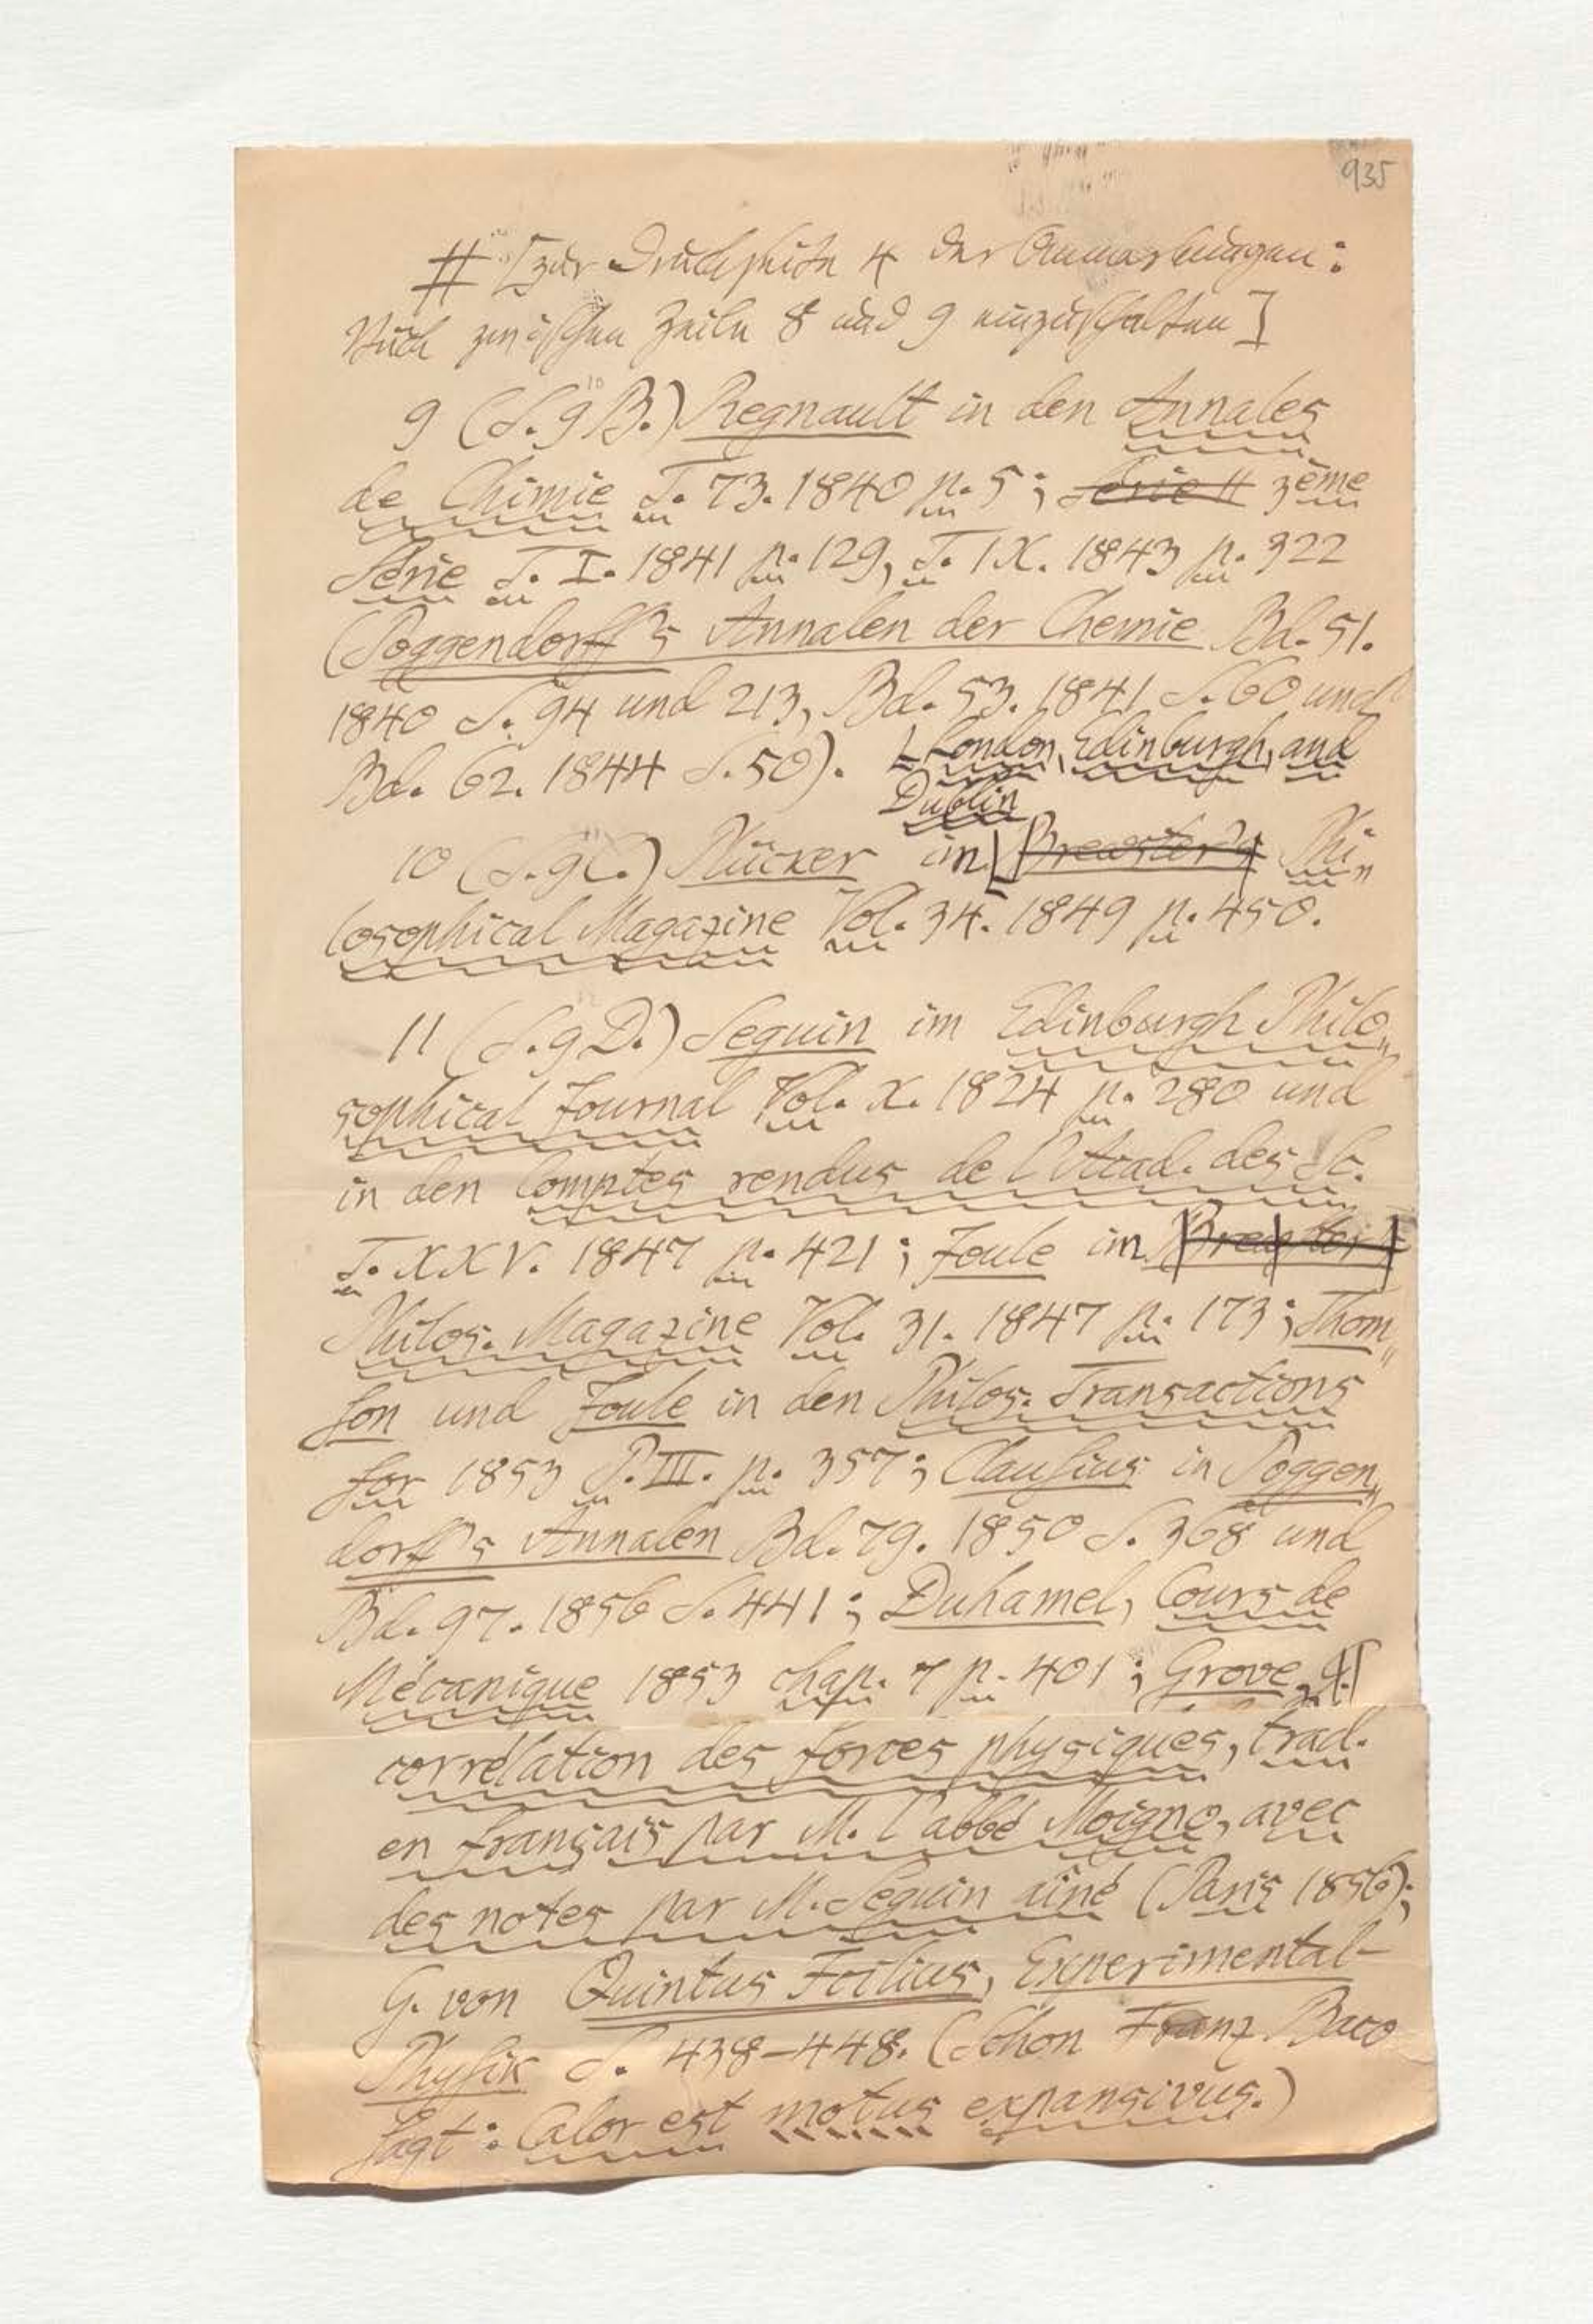 935
# [zur Druckseite 4 der Anmerkungen:
Noch zwischen Zeile 8 und 9 einzuschalten]
10
9 (S. 9 B.) Regnault in den Annales
de Chimie T. 73. 1840 p. 5; Série II 3ème
Série T. I. 1841 p. 129, T. IX. 1843 p. 322
(Poggendorff's Annalen der Chemie Bd. 51.
1840 S. 94 und 213, Bd. 53. 1841 S. 60 und
Bd. 62. 1844 S. 50).
London, Edinburgh, and
Dublin
11
10 (S. 9 C.) Plücker im Brewster's Phi„
losophical Magazine Vol. 34. 1849 p. 450.
11 (S. 9 D.) Seguin im Edinburgh Philo„
sophical Journal Vol. X. 1824 p. 280 und
in den Comptes rendus de l'Acad. des Sc.
T. XXV. 1847 p. 421; Joule im Brewster's
Philos. Magazine Vol. 31. 1847 p. 173; Thom„
son und Joule in den Philos. Transactions
for 1853 P. III. p. 357; Clausius in Poggen„
dorff's Annalen Bd. 79. 1850 S. 368 und
Bd. 97. 1856 S. 441; Duhamel, Cours de
Mécanique 1853 chap. 7 p. 401; Grove,
corrélation des forces physiques, trad.
en français par M. l'abbé Moigno, avec
des notes par M. Seguin aîné (Paris 1856);
G. von Quintus Icilius, Experimental-
Physik S. 438–448. (Schon Franz Baco
sagt: Calor est motus expansivus.)